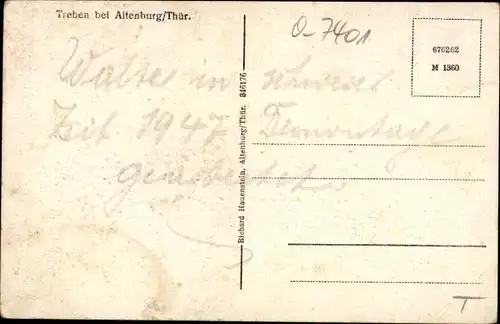 Treben bei Altenburg/Thür.
O-7401
676262
M 1360
Walter in
Zeit 1947 Demontage
gearbeitet.
Richard Hauenstein, Altenburg/Thür. 346176
T